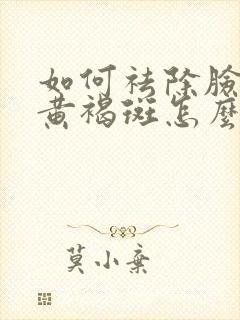 如何祛除臉
黃褐斑怎麼
莫小棄